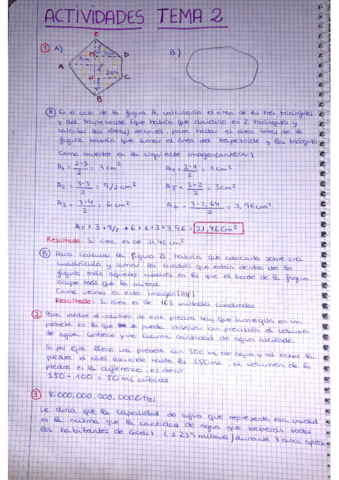 ACTIVIDADES TEMA 2
1 A) B)
E
M D
A
N C
B
A En el caso de la figura A, calcularía el área de los tres triángulos
y del trapezoide (que habría que dividirlo en 2 triángulos y
calcular las áreas) después, para hallar el área total de la
figura habría que sumar el área del trapezoide y los triángulos
Como muestro en la siguiente imagen (anterior)
A1 = 2·3/2 = 3 cm² A4 = 2·1/2 = 1 cm²
A2 = 3·3/2 = 9/2 cm² A5 = 3×2/2 = 3 cm²
A3 = 3·4/2 = 6 cm² A6 = 3·2,64/2 = 3,96 cm²
AT = 3 + 9/2 + 6 + 1 + 3 + 3,96 = 21,46 cm²
Resultado: Su área es de 21,46 cm²
B Para calcular la figura B, habría que colocarla sobre una
cuadrícula y sumar los cuadros que están dentro de la
figura más aquellos cuadros en los que el borde de la figura
ocupe más que la mitad.
Como vemos en esta imagen
Resultado: Su área es de 163 unidades cuadradas
2 Para medir el volumen de esta piedra hay que sumergirla en un
probeta en la que se pueda observar con precisión el volumen
de agua. Contiene y ver cuanta cantidad de agua asciende.
Si por ejm. lleno una probeta con 100 mL de agua y al echar la
piedra el nivel asciende hasta los 150 mL, el volumen de la
piedra es la diferencia, es decir
150 - 100 = 50 mL cúbicos
3. 8.000.000.000.000 litros
Le diría que la capacidad de agua que representa esa unidad
es la misma que la cantidad de agua que beberían todos
los habitantes de (1.239 millones) durante 7 años aprox